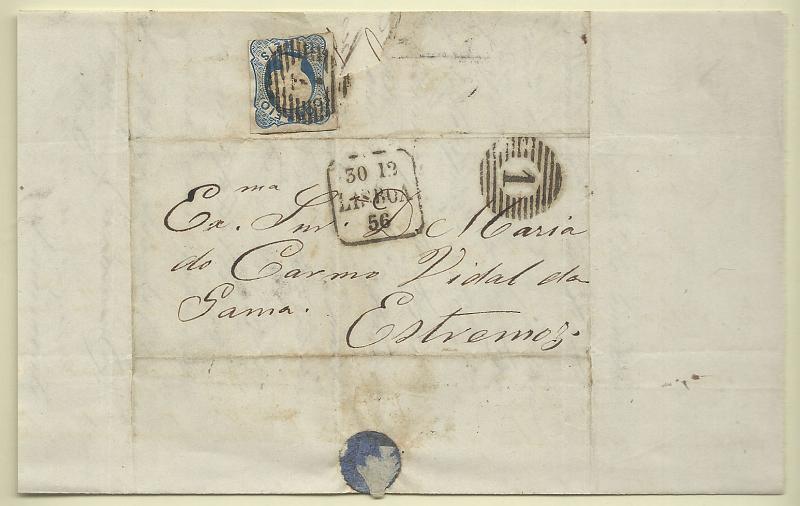 30 12
LISBOA
56
1
Ex.ma Snr. D. Maria
do Carmo Vidal da
Gama.
Estremoz.